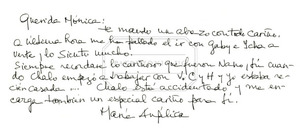 Querida Mónica:
te mando un abrazo con todo cariño.
A última hora me ha fallado el ir con Gaby e Icha a
verte, lo siento mucho.
Siempre recordaré lo cariñosos que fueron Nano, fui cuando
Chalo empezó a trabajar con V. C y H y yo estaba re-
cién casada... Chalo está accidentado y me en-
carga también un especial cariño para ti.
María Angélica